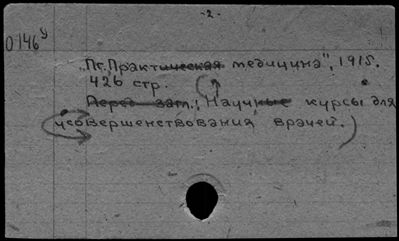 -2-
0146у
Пг. "Практическая медицина", 1915.
426 стр.
Перед загл.: Научные курсы для
усовершенствования врачей.)